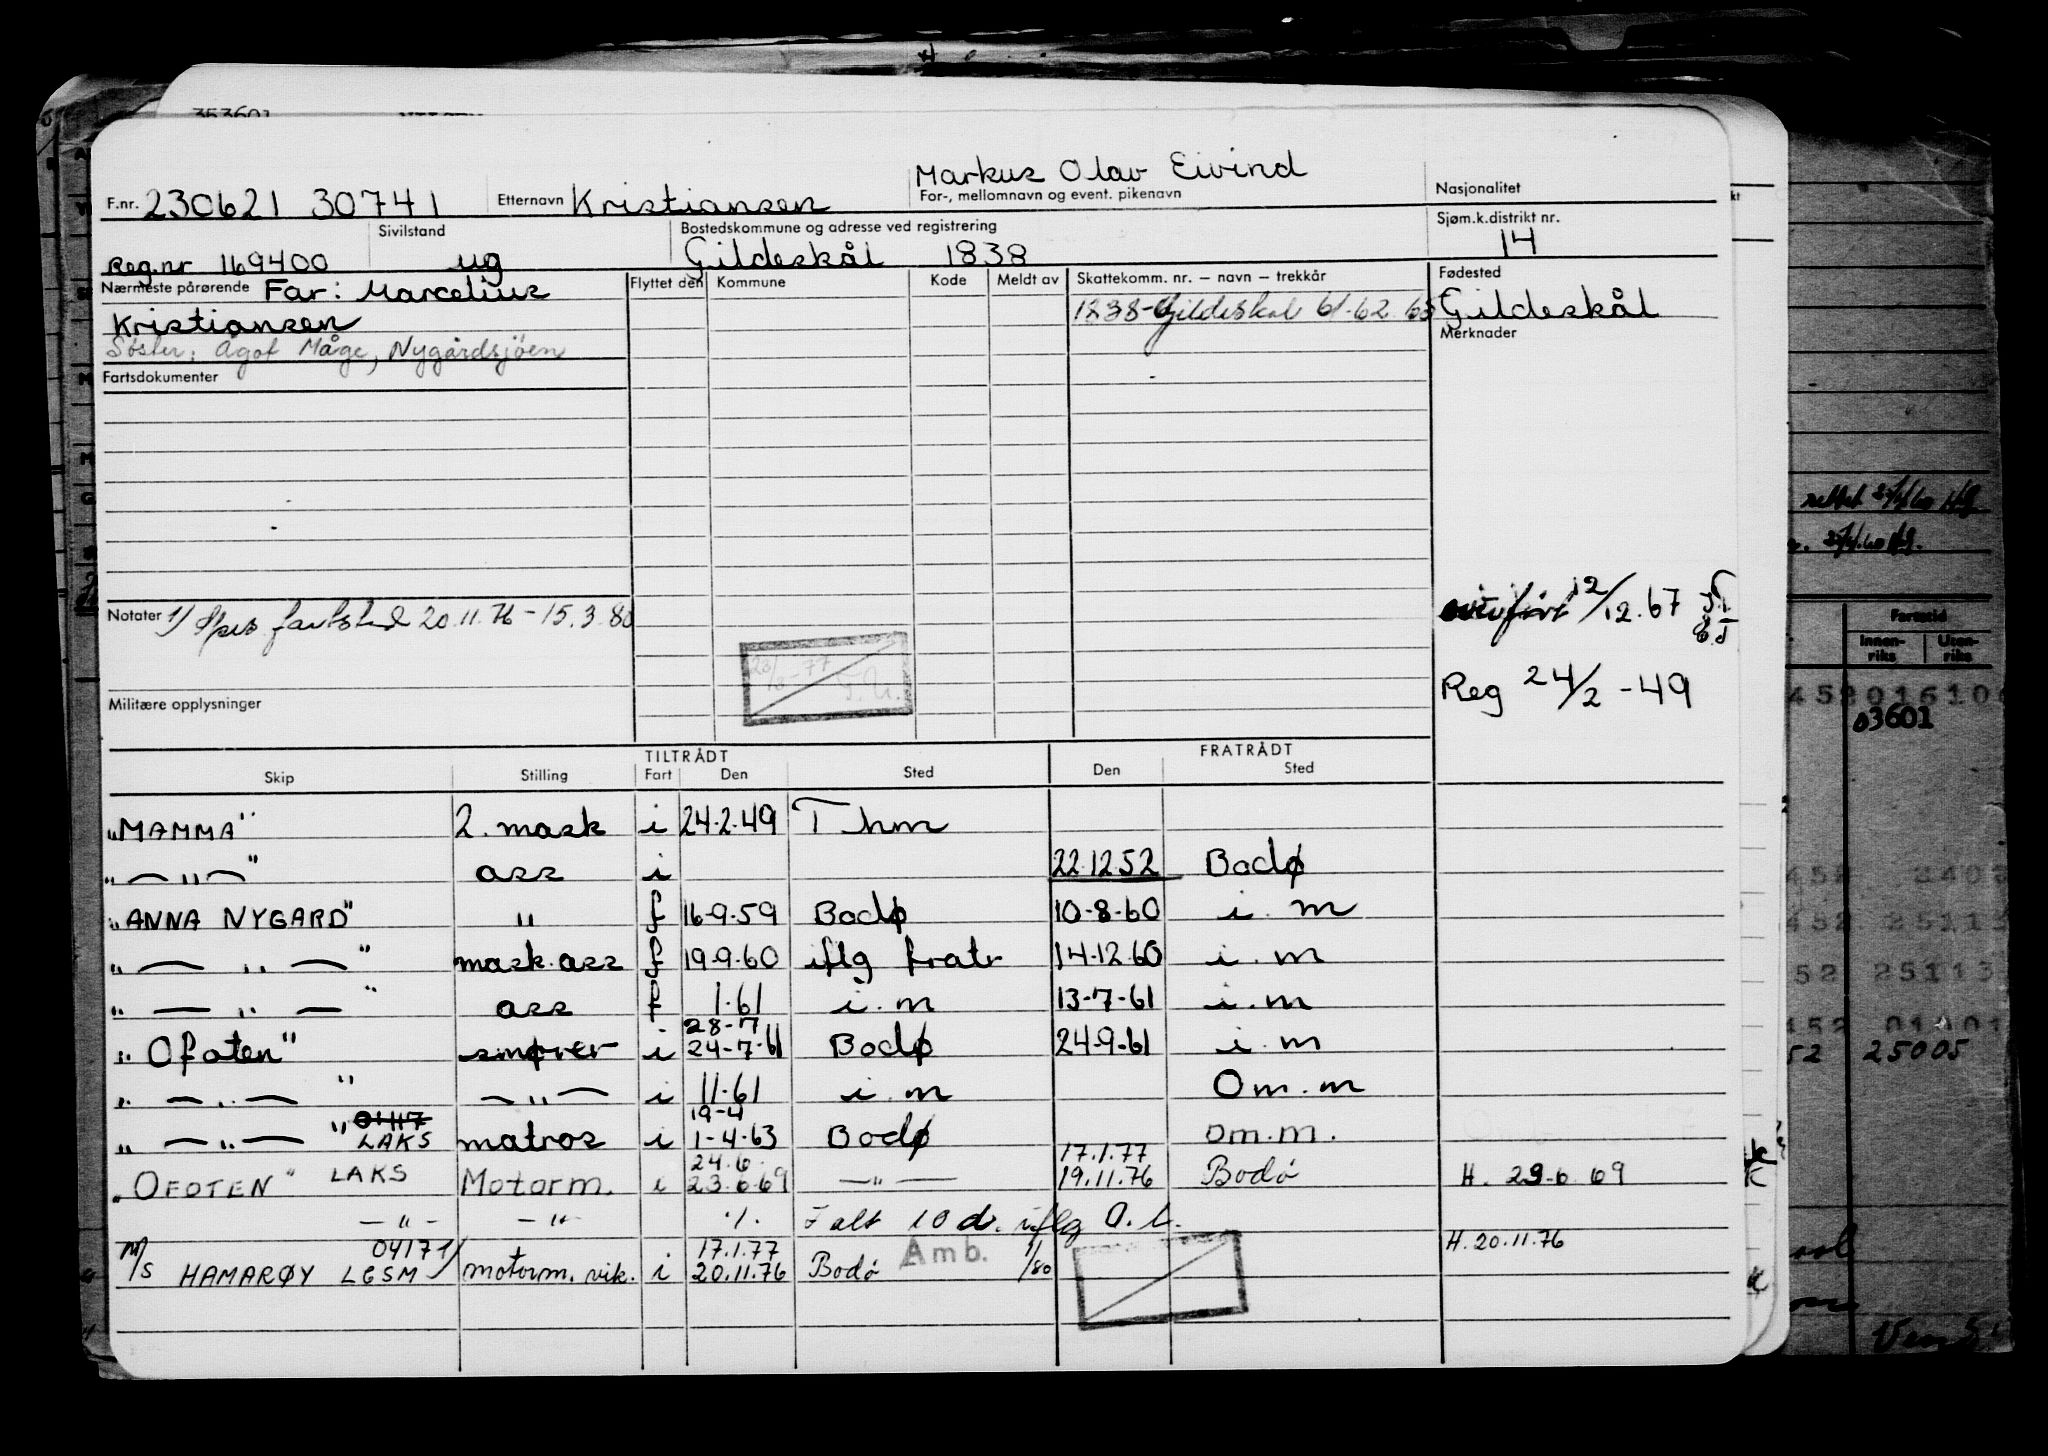 353601
Markus Olav Eivind
F.nr. 230621 30741 Etternavn Kristiansen For-, mellomnavn og event. pikenavn Nasjonalitet
Sivilstand Bostedskommune og adresse ved registrering Sjøm.k.distrikt nr.
Reg.nr 169400 ug Gildeskål 1838 14
Nærmeste pårørende Far: Marcelius Flyttet den Kommune Kode Meldt av Skattekomm. nr. – navn – trekkår Fødested
Kristiansen 1238-Gildeskål 61-62 63 Gildeskål
Søster: Agot Måge, Nygårdsjøen Merknader
Fartsdokumenter
rettet 27/4/60 HG
overført 12/12.67
Notater 1) Spes. fartstid 20.11.76 - 15.3.80
Reg 24/2 -49
Militære opplysninger
TILTRÅDT FRATRÅDT
Skip Stilling Fart Den Sted Den Sted
"MAMMA" 2. mask i 24.2.49 Thm
" — " — " ass i 22.12.52 Bodø
"ANNA NYGARD" " f 16-9-59 Bodø 10-8-60 i. m
" — " — " mask.ass f 19-9-60 iflg fratr 14-12.60 i. m
" — " — " ass f 1-61 i. m 13-7-61 i. m
28-7
"Ofoten" smører i 24-7-61 Bodø 24-9-61 i. m
" — " — " — " — i 11-61 i. m Om. m
19-4
" — " — " LAKS matros i 1-4-63 Bodø om. m.
24.6. 17.1.77
"OFOTEN" LAKS Motorm. i 23.6.69 — " — 19.11.76 Bodø H. 23.6.69
— " — — " — ·/. I alt 10 d. iflg A.L.
04171) 17.1.77 Amb. H. 20.11.76
M/S HAMARØY LGSM motorm. vik. i 20.11.76 Bodø 1/80
Fartstid
Innenriks Utenriks
452016106
03601
25113
25005